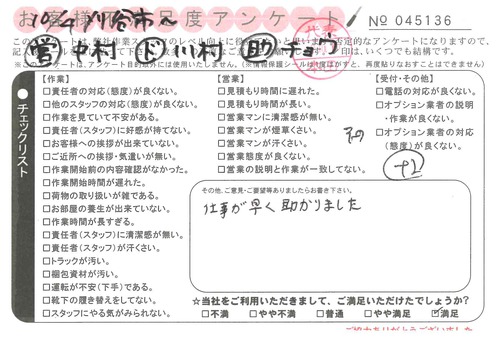 お客様満足度アンケート
10/4 刈谷市〜
№ 045136
営 中村 ド 川村 助 チョウ
この
のレベル向上に役
否定的なアンケートになりますので、
記入
います。いくつでも結構です。
※このアンケートは、アンケート目的以外には使用いたしません。
チェックリスト
【作業】
□責任者の対応(態度)が良くない。
□他のスタッフの対応(態度)が良くない。
□作業を見ていて不安がある。
□責任者(スタッフ)に好感が持てない。
□お客様への挨拶が出来ていない。
□ご近所への挨拶・気遣いが無い。
□作業開始前の内容確認がなかった。
□作業開始時間が遅れた。
□荷物の取り扱いが雑である。
□お部屋の養生が出来ていない。
□作業時間が長すぎる。
□責任者(スタッフ)に清潔感が無い。
□責任者(スタッフ)が汗くさい。
□トラックが汚い。
□梱包資材が汚い。
□運転が不安(下手)である。
□靴下の履き替えをしてない。
□スタッフにやる気がみられない。
【営業】
□見積もり時間に遅れた。
□見積もり時間が長い。
□営業マンに清潔感が無い。
□営業マンが煙草くさい。
□営業マンが汗くさい。
□営業態度が良くない。
□営業の説明と作業が一致してない。
【受付・その他】
□電話の対応が良くない。
□オプション業者の説明
・作業が良くない。
□オプション業者の対応
(態度)が良くない。
+2
その他、ご意見・ご要望等ありましたらお書き下さい。
仕事が早く助かりました
☆当社をご利用いただきまして、ご満足いただけたでしょうか?
□不満 □やや不満 □普通 □やや満足 ☑満足
ご協力ありがとうございました